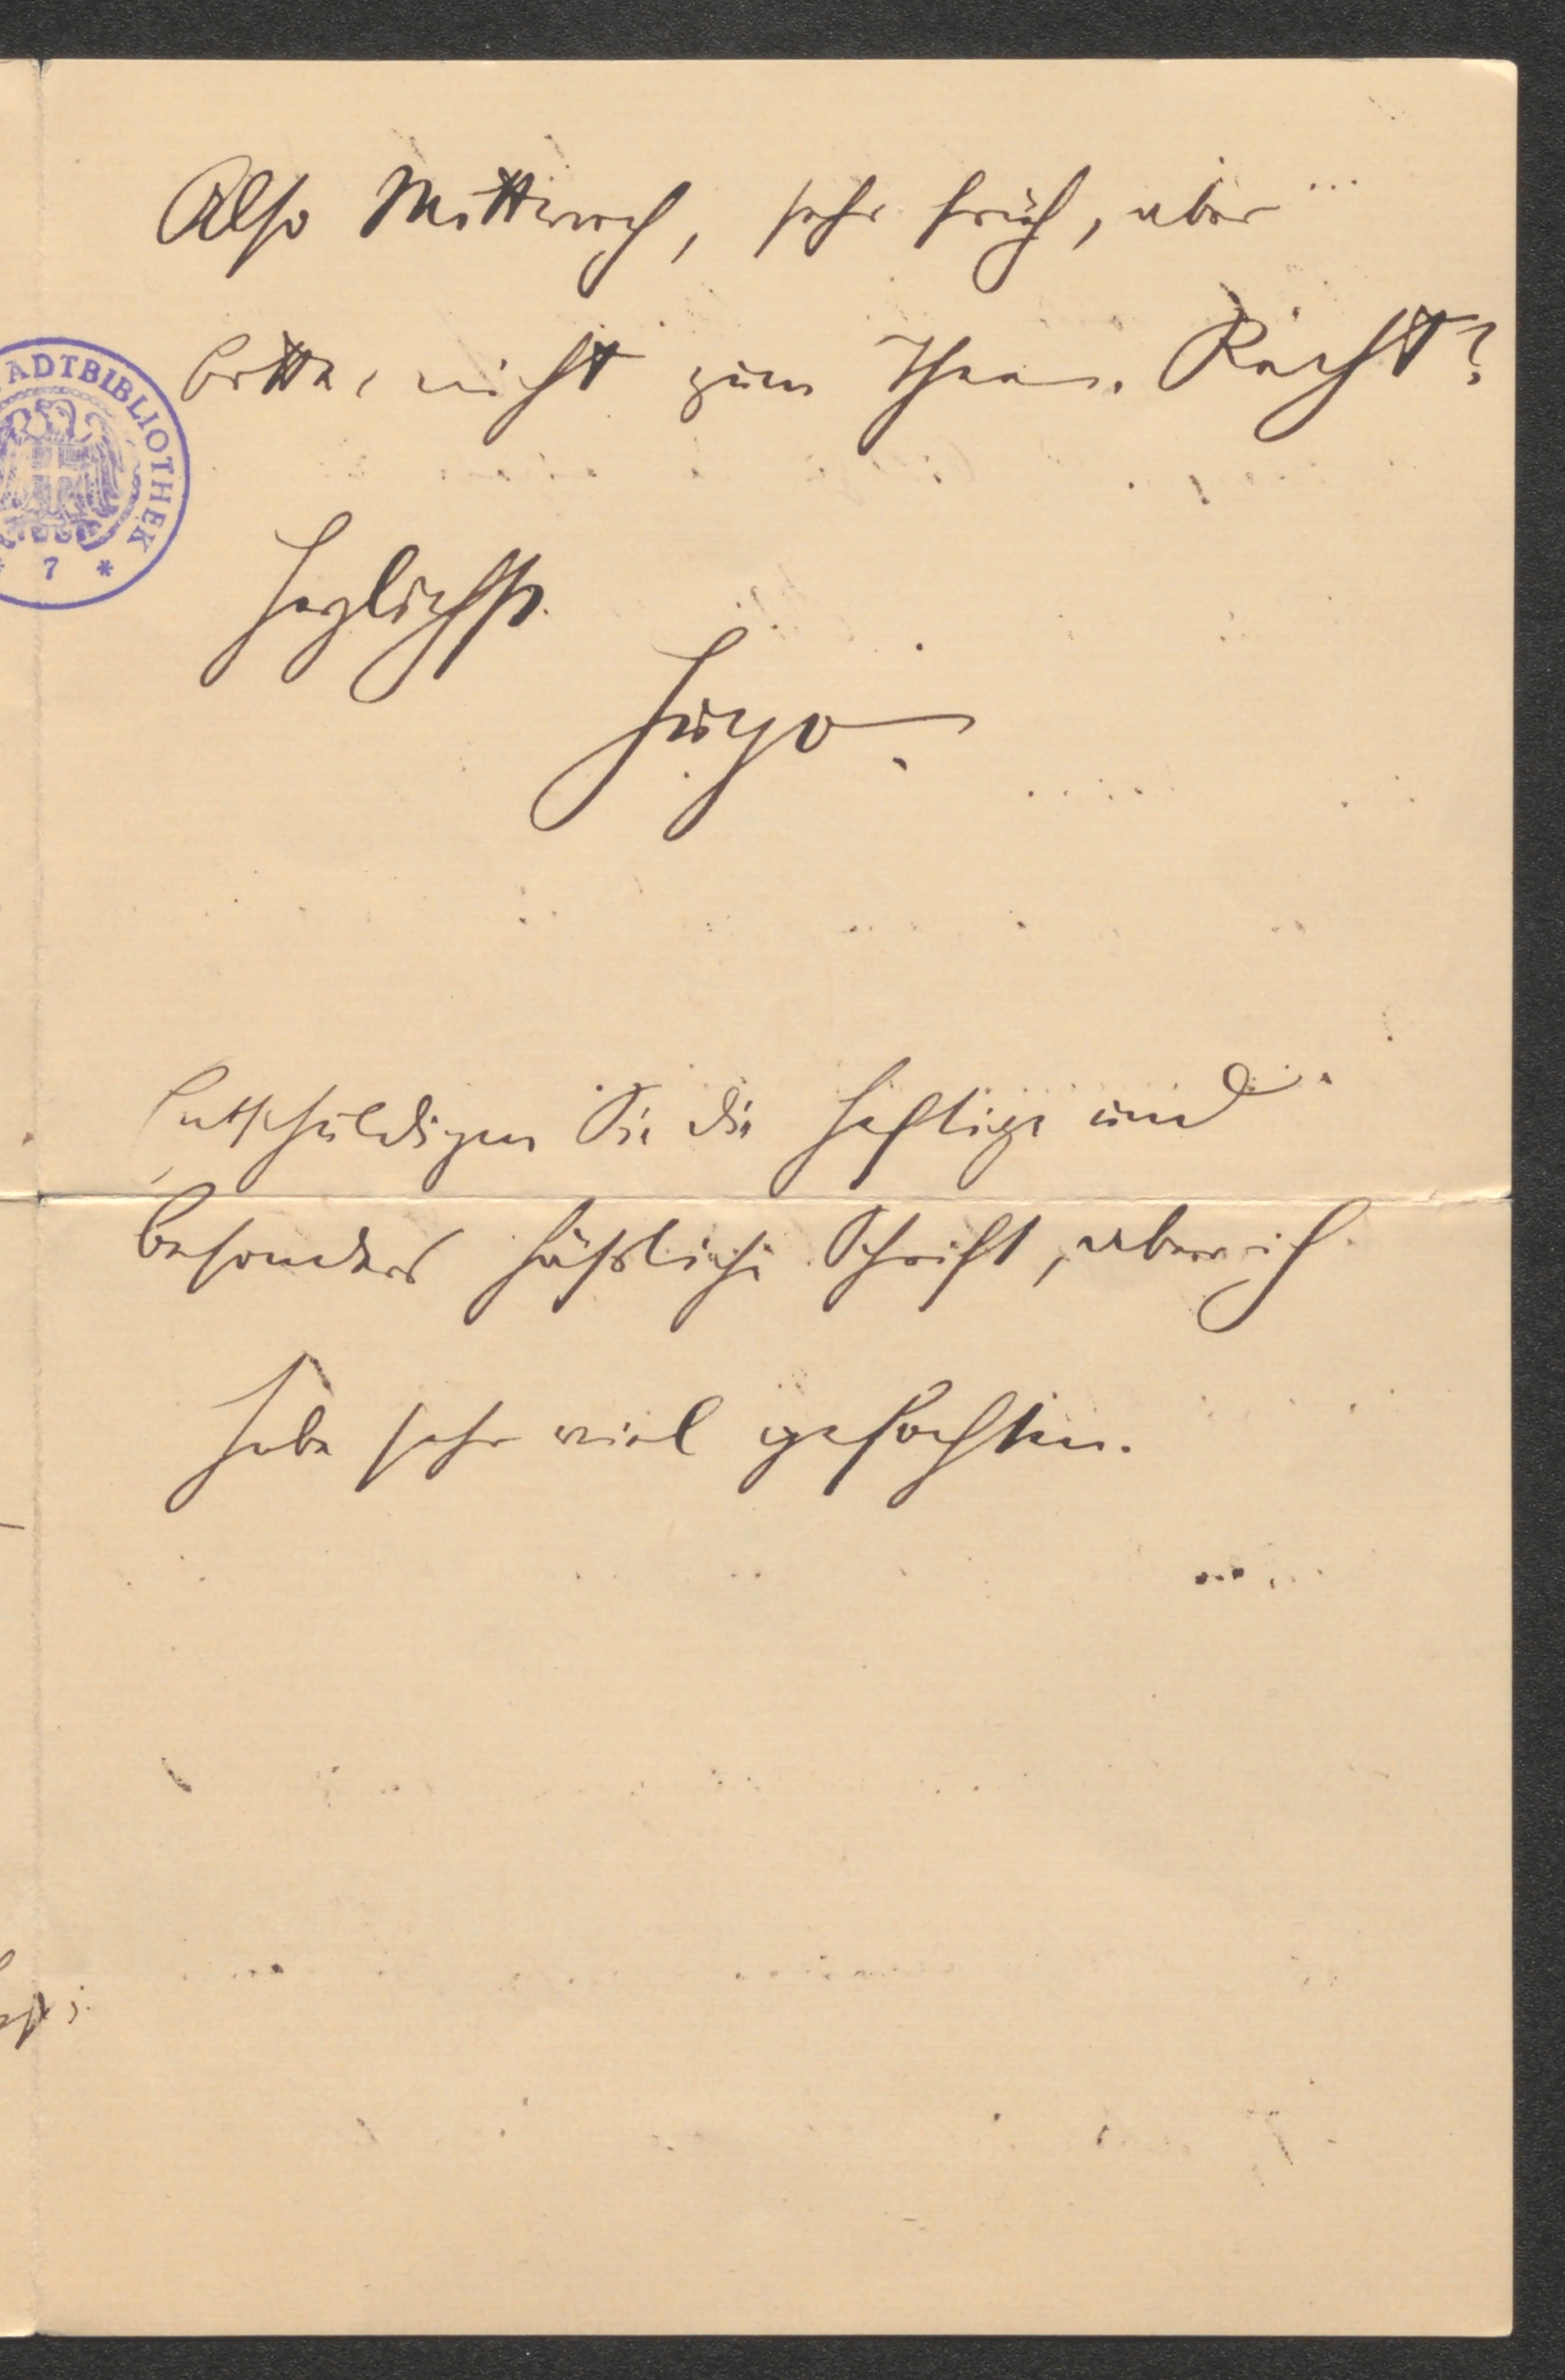 Also Mittwoch, sehr früh, aber
bitte, nicht zum Thee. Recht?
ADTBIBLIOTHEK
* 7 *
Herzlichst
Hugo.
Entschuldigen Sie die heftige und
besonders häßliche Schrift, aber ich
habe sehr viel gefochten.